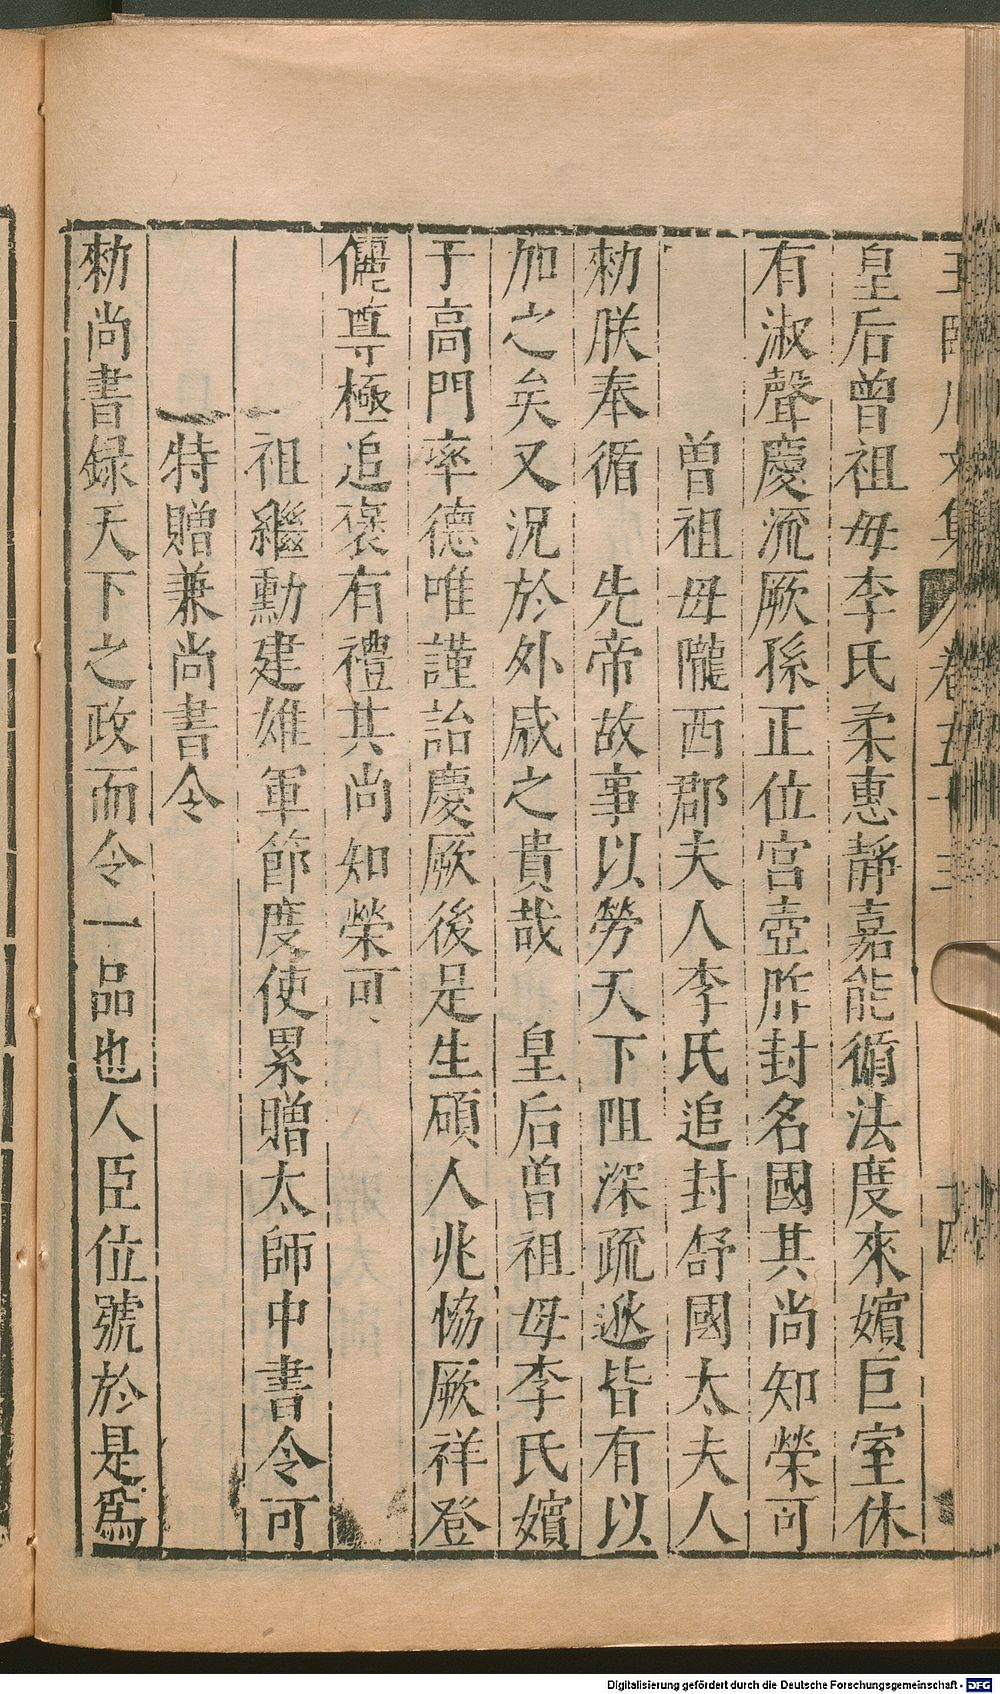 皇后曾祖母李氏柔惠靜嘉能循法度來嬪巨室休
有淑聲慶流厥孫正位宮壼胙封名國其尚知榮可
曾祖母隴西郡夫人李氏追封舒國太夫人
勑朕奉循　先帝故事以勞天下阻深疏逖皆有以
加之矣又況於外戚之貴哉　皇后曾祖母李氏嬪
于高門率德唯謹詒慶厥後是生碩人兆恊厥祥登
儷尊極追褒有禮其尚知榮可
祖繼勳建雄軍節度使累贈太師中書令可
特贈兼尚書令
勑尚書録天下之政而令一品也人臣位號於是爲
Digitalisierung gefördert durch die Deutsche Forschungsgemeinschaft - DFG